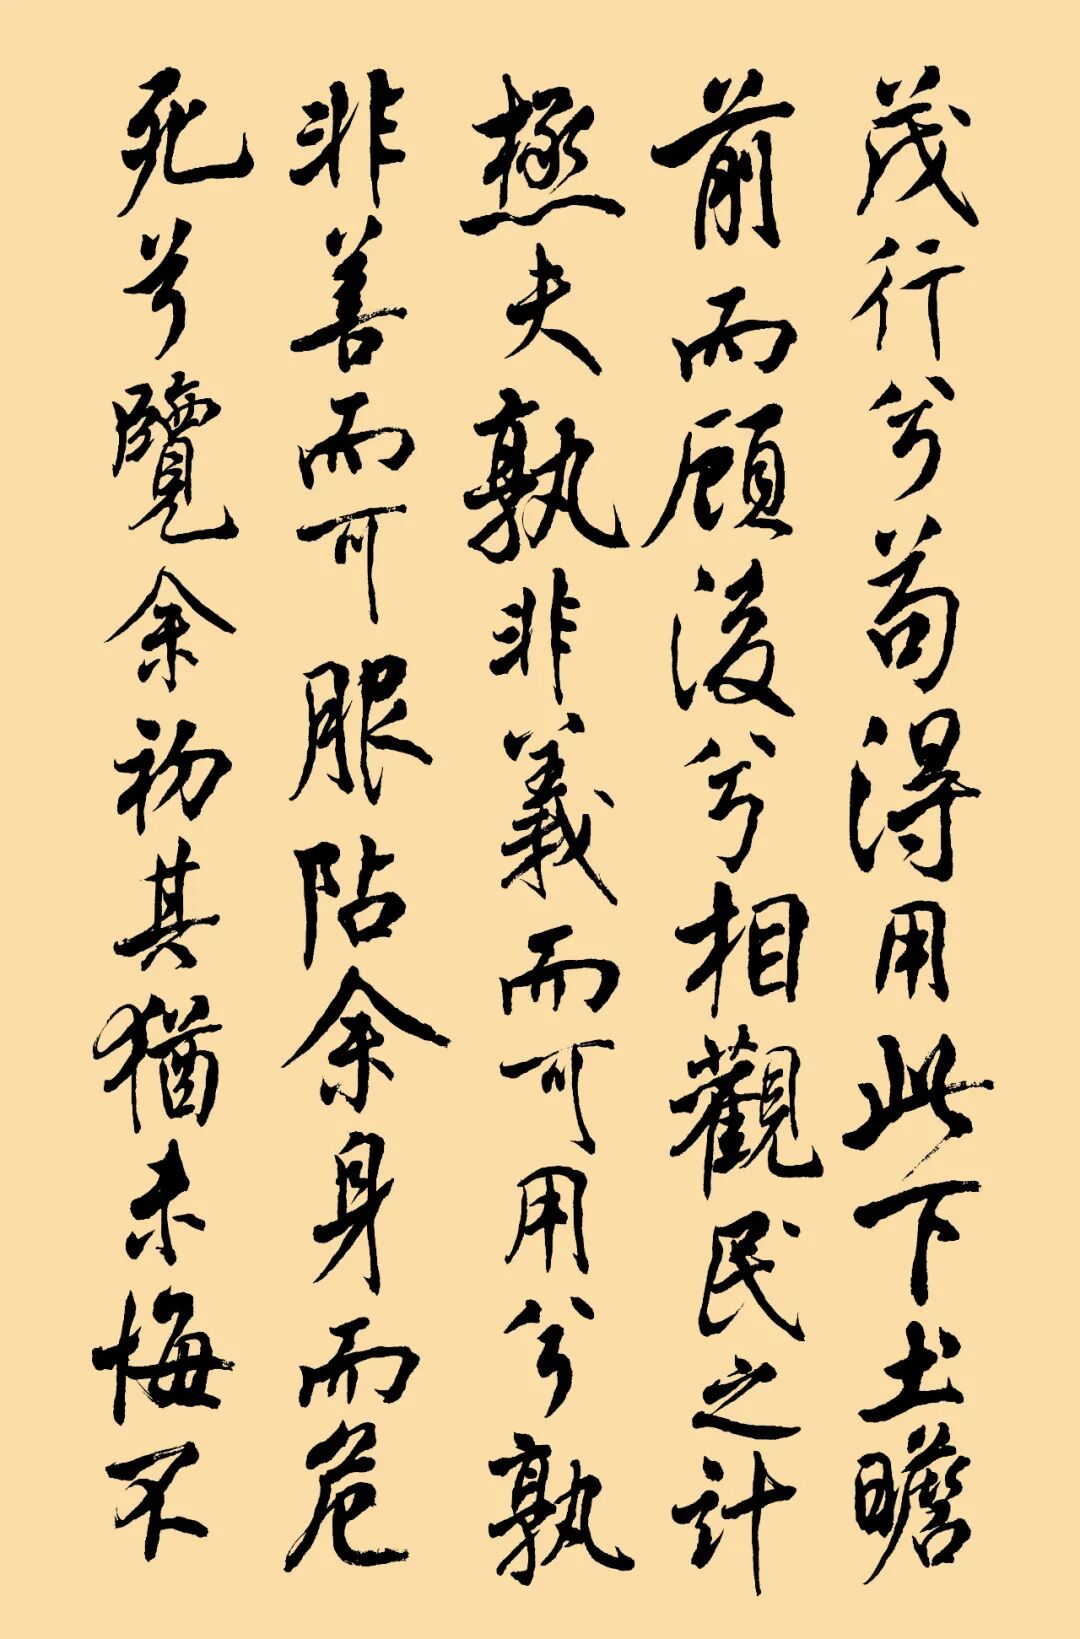 茂行兮苟得用此下土瞻
前而顧後兮相觀民之計
極夫孰非義而可用兮孰
非善而可服阽余身而危
死兮覽余初其猶未悔不